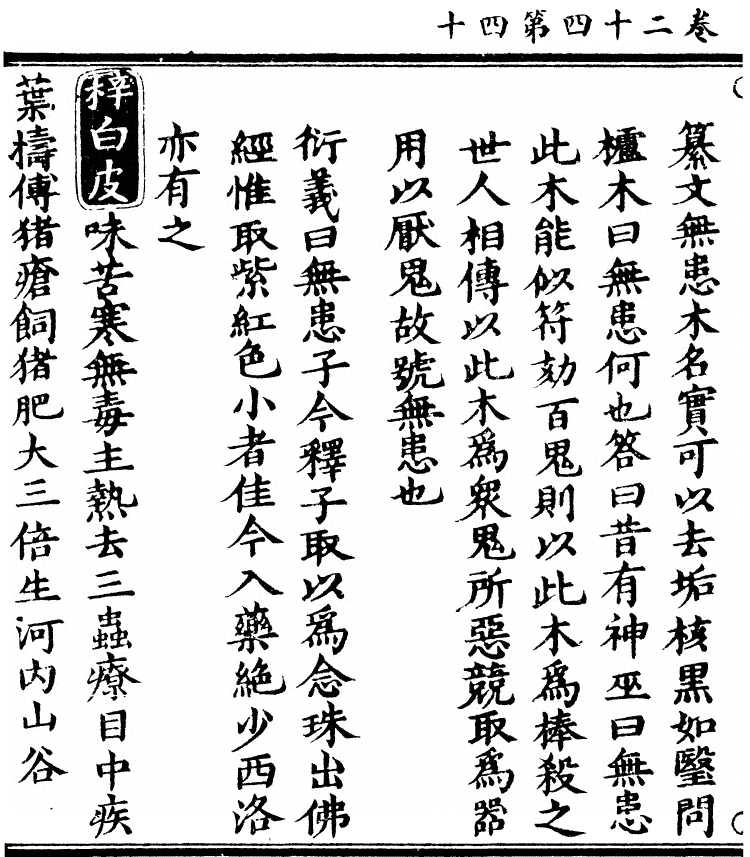 卷二十四第四十
纂文無患木名實可以去垢核黒如瑿問
櫨木曰無患何也答曰昔有神巫曰無患
此木能以符劾百鬼則以此木爲棒殺之
世人相傳以此木爲衆鬼所惡競取爲器
用以厭鬼故號無患也
衍義曰無患子今釋子取以爲念珠出佛
經惟取紫紅色小者佳今入藥絶少西洛
亦有之
梓白皮味苦寒無毒主熱去三蟲療目中疾
葉擣傅猪瘡飼猪肥大三倍生河内山谷